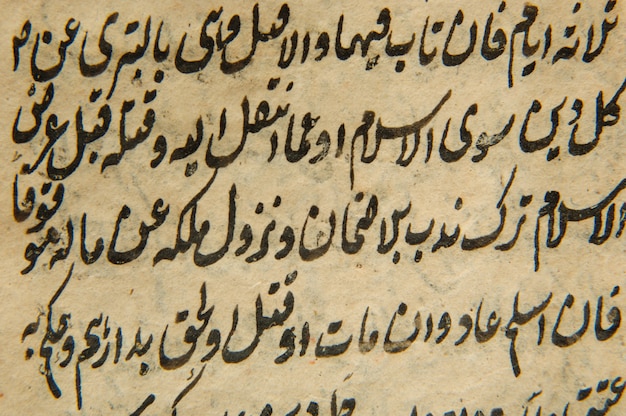 ثلاثة ايام فان تاب فيها والا قتل واتى بالتبري عن
كل دين سوى الاسلام او عما انتقل اليه وقتله قبل عرض
الاسلام ترك ندب بلا ضمان ونزول ملكه عن ماله موقوفا
فان اسلم عاد وان مات او قتل او لحق بدارهم وحكم به
عتق